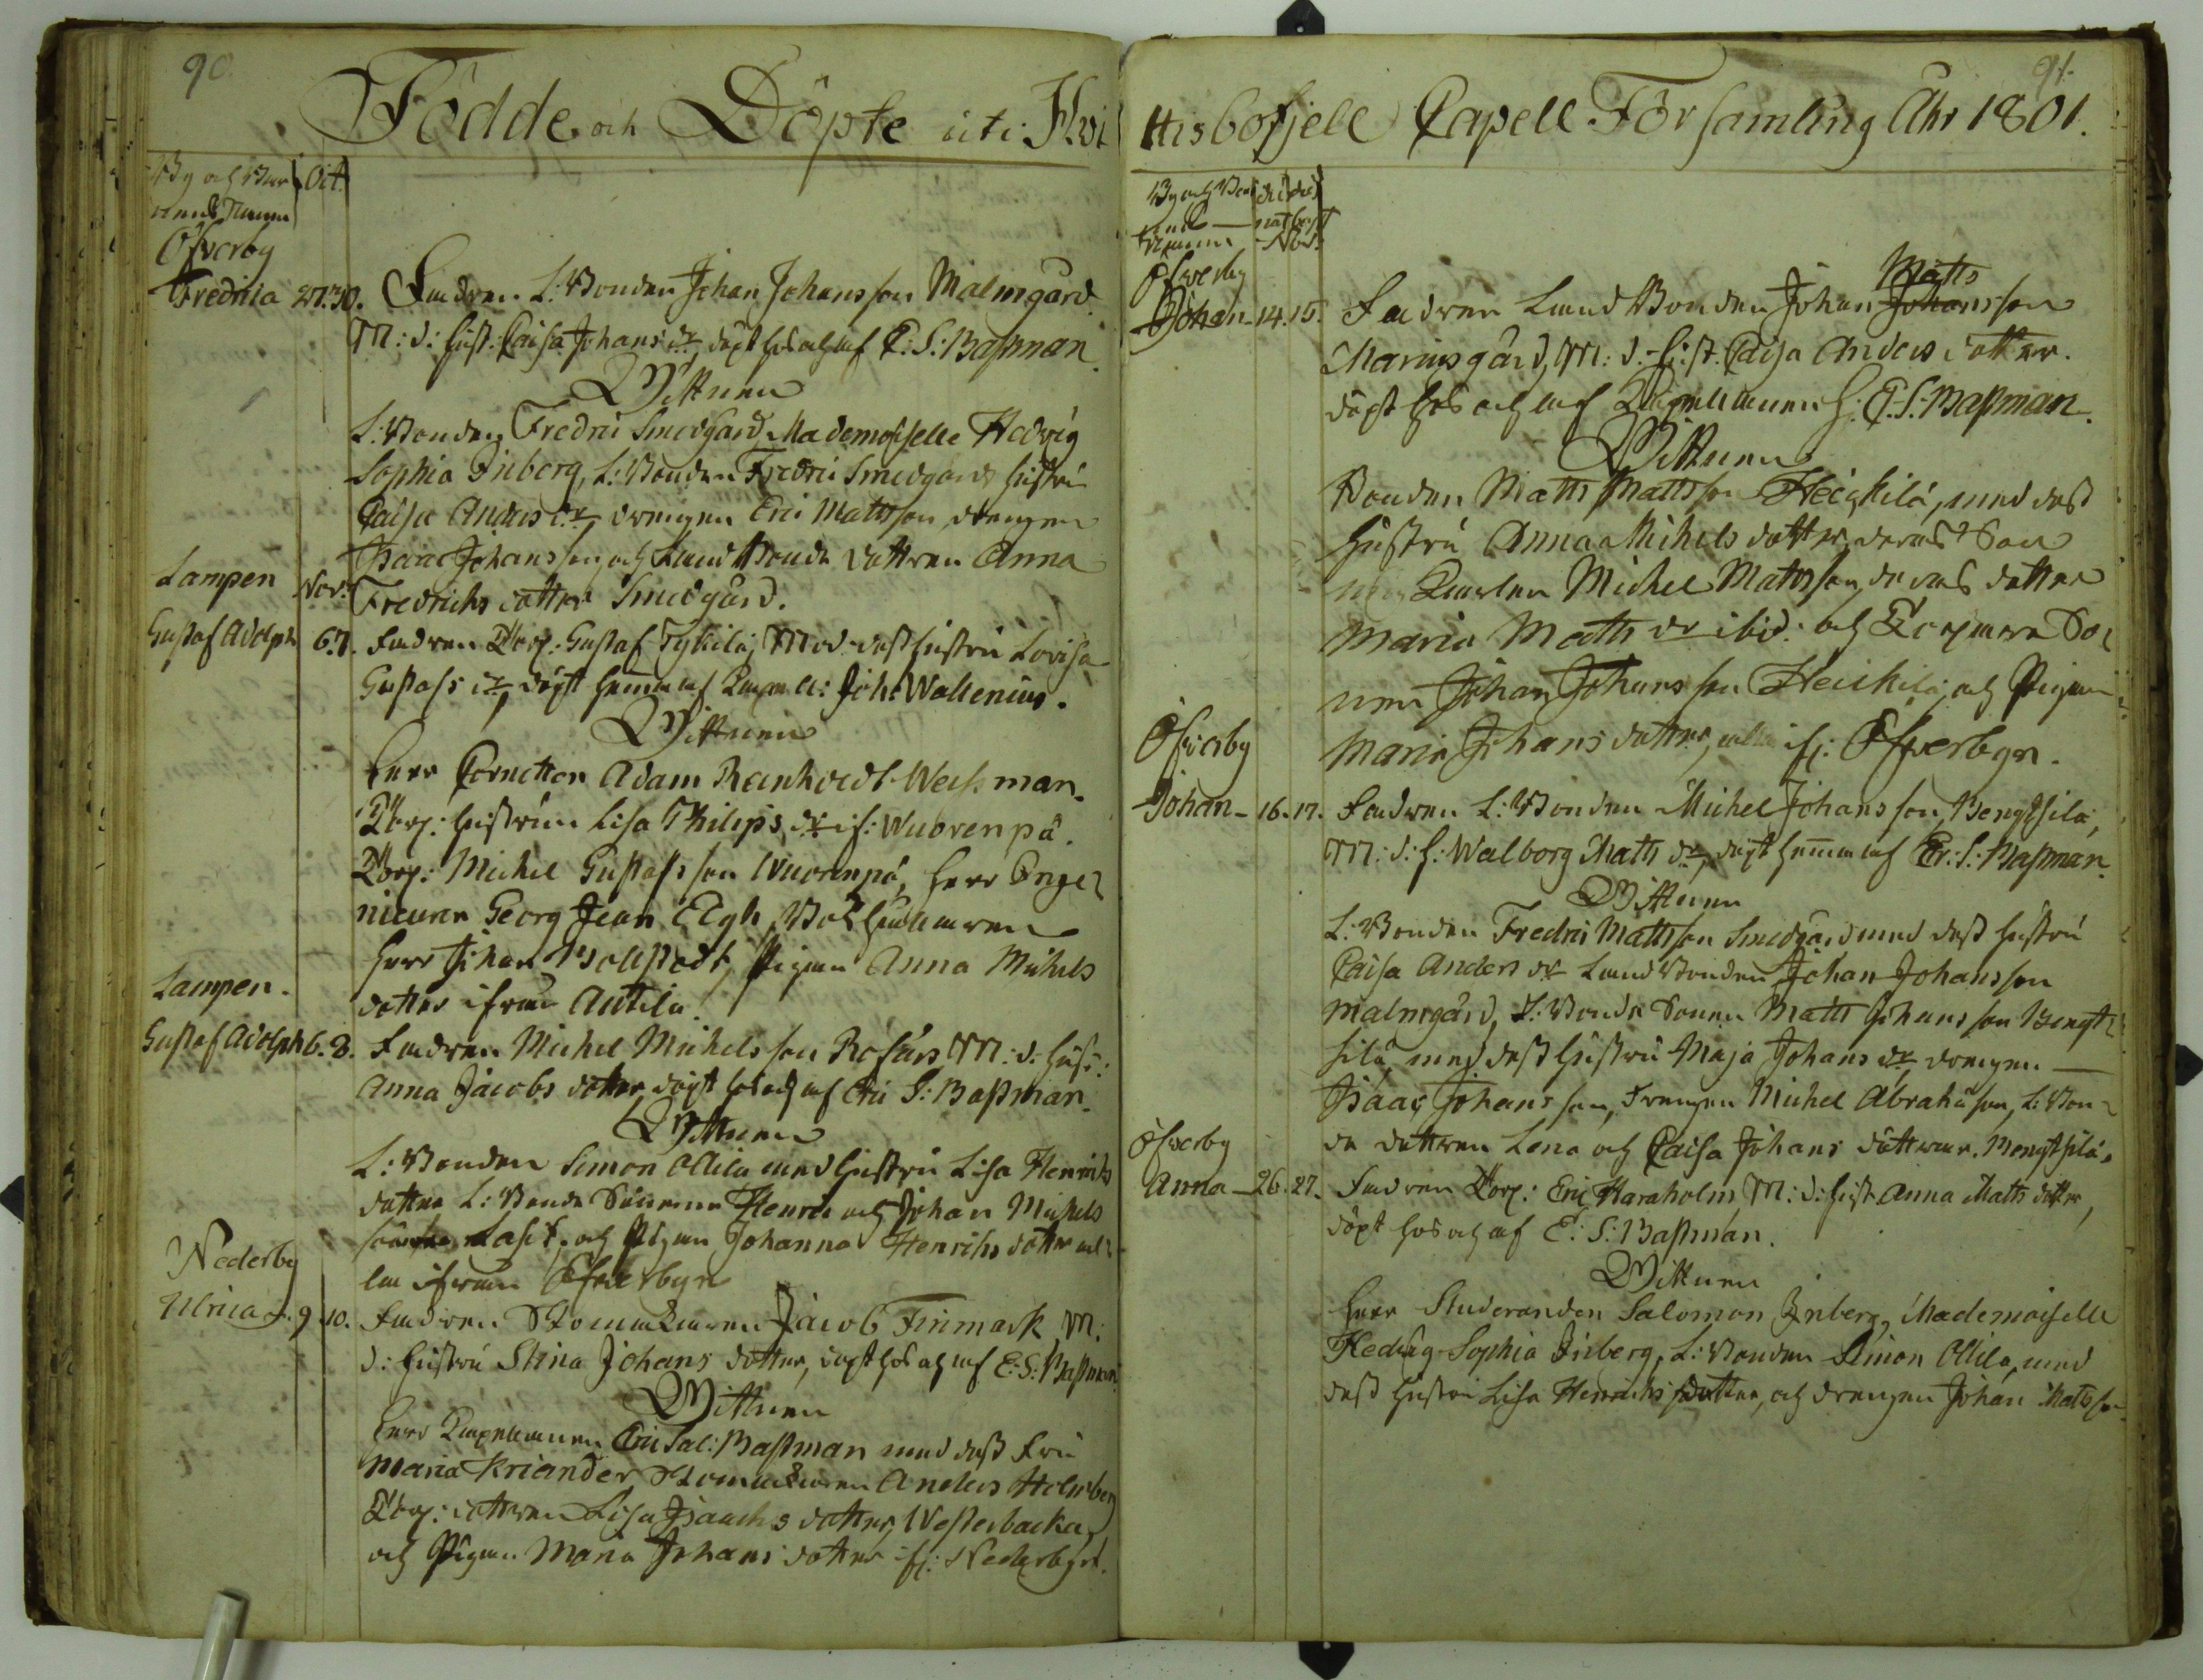 90.
Födde och Döpte uti Hvi
By och Bar
nens Namn
Oct.
Öfverby
Fredrica 27. 30. Fadren L: Bonden Johan Johansson Malmgård
M: d: Hust: Caisa Johans dr, döpt hos och af E: S: Bassman.
Wittnen
L: Bonden Fredric Smedgård, Mademoiselle Hedvig
Sophia Inberg, L: Bonden Fredric Smedgårds hustru
Caisa Anders dr, drengen Eric Mattsson, drengen
Isaac Johansson, och Land Bonde dottren Anna
Fredrichs dotter Smedgård.
Lampen Nov:
Gustaf Adolph 6. 7. Fadren Torp: Gustaf Tykilä, Mod: dess hustru Lovisa
Gustafs dr, döpt hemma af Capell: Joh: Wallenius.
Wittnen
Herr Cornetten Adam Reinholdt Weissman.
Torp: hustrun Lisa Philips dr if: Wuorenpä.
Torp: Michel Gustafsson Wuorenpä, Herr Inge
nieuren Georg Jean Elgh, Bokhållaren
Herr Johan Bollstedt, Pigan Anna Michels
dotter ifrån Antila.
Lampen.
Gustaf Adolph 6. 8. Fadren Michel Michelsson Rosärs M: d: Hust:
Anna Jacobs dotter döpt hos och af Eric S: Bassman.
Wittnen
L: Bonden Simon Ollila med hustru Lisa Henrichs
dotter L: Bonde Sönerne Henric och Johan Michels
söner och Pigan Johanna Henrichs dotter al
la ifrån Öfverbyn
Nederby
Ulrica 9. 10. Fadren Skomakaren Jacob Finmark M:
d: hustru Stina Johans dotter, döpt hos och af E: S: Bassman
Wittnen
Herr Capellanen Eric Sal: Bassman med dess Fru
Maria Kriander Skomakaren Anders Holmberg
Torp: dottren Lisa Isaachs dotter, Westerbacka,
och Pigan Maria Johans dotter if: Nederbyn.
91.
ttisbofjell Capell Församling Åhr 1801.
By och Bar
nens
Namn
Nov:
Öfverby
Johan 14. 15. Fadren Land Bonden Johan Johansson Matts
Mariisgård, M: d: Hust. Caisa Anders dotter.
döpt hos och af Capellanen H: E: S: Bassman.
Wittnen
Bonden Matts Mattsson Heickilä, med dess
Hustru Anna Michels dotter, deras Son
Michel Mattsson, deras dotter
Maria Matts dr ibid: och Torpare So
nen Johan Johansson Heickilä, och Pigan
Maria Johans dotter, alla if: Öfverbyn.
Öfverby
Johan 16. 17. Fadren L: Bonden Michel Johansson, Bengtsilä,
M: d: h: Walborg Matts dr, döpt hemma af Er: S: Bassman.
Wittnen
L: Bonden Fredric Mattsson Smedgård med dess hustru
Caisa Anders dr Land Bonden Johan Johansson
Malmgård, L: Bonde Sonen Matts Johansson Bengt
silä, med dess Hustru Maja Johans dr, drengen
Isaac Johansson, drengen Michel Abrahamson, L: Bon
de dottren Lena och Caisa Johans döttrar. Bengtsilä.
Öfverby
Anna 26. 27. Fadren Torp: Eric Haraholm, M: d: hust. Anna Matts dotter,
döpt hos och af E: S: Bassman.
Wittnen
Herr Studeranden Salomon Inberg, Mademoiselle
Hedvig Sophia Inberg, L: Bonden Simon Ollila, med
dess Hustru Lisa Henrichs dotter, och drengen Johan Mattsson